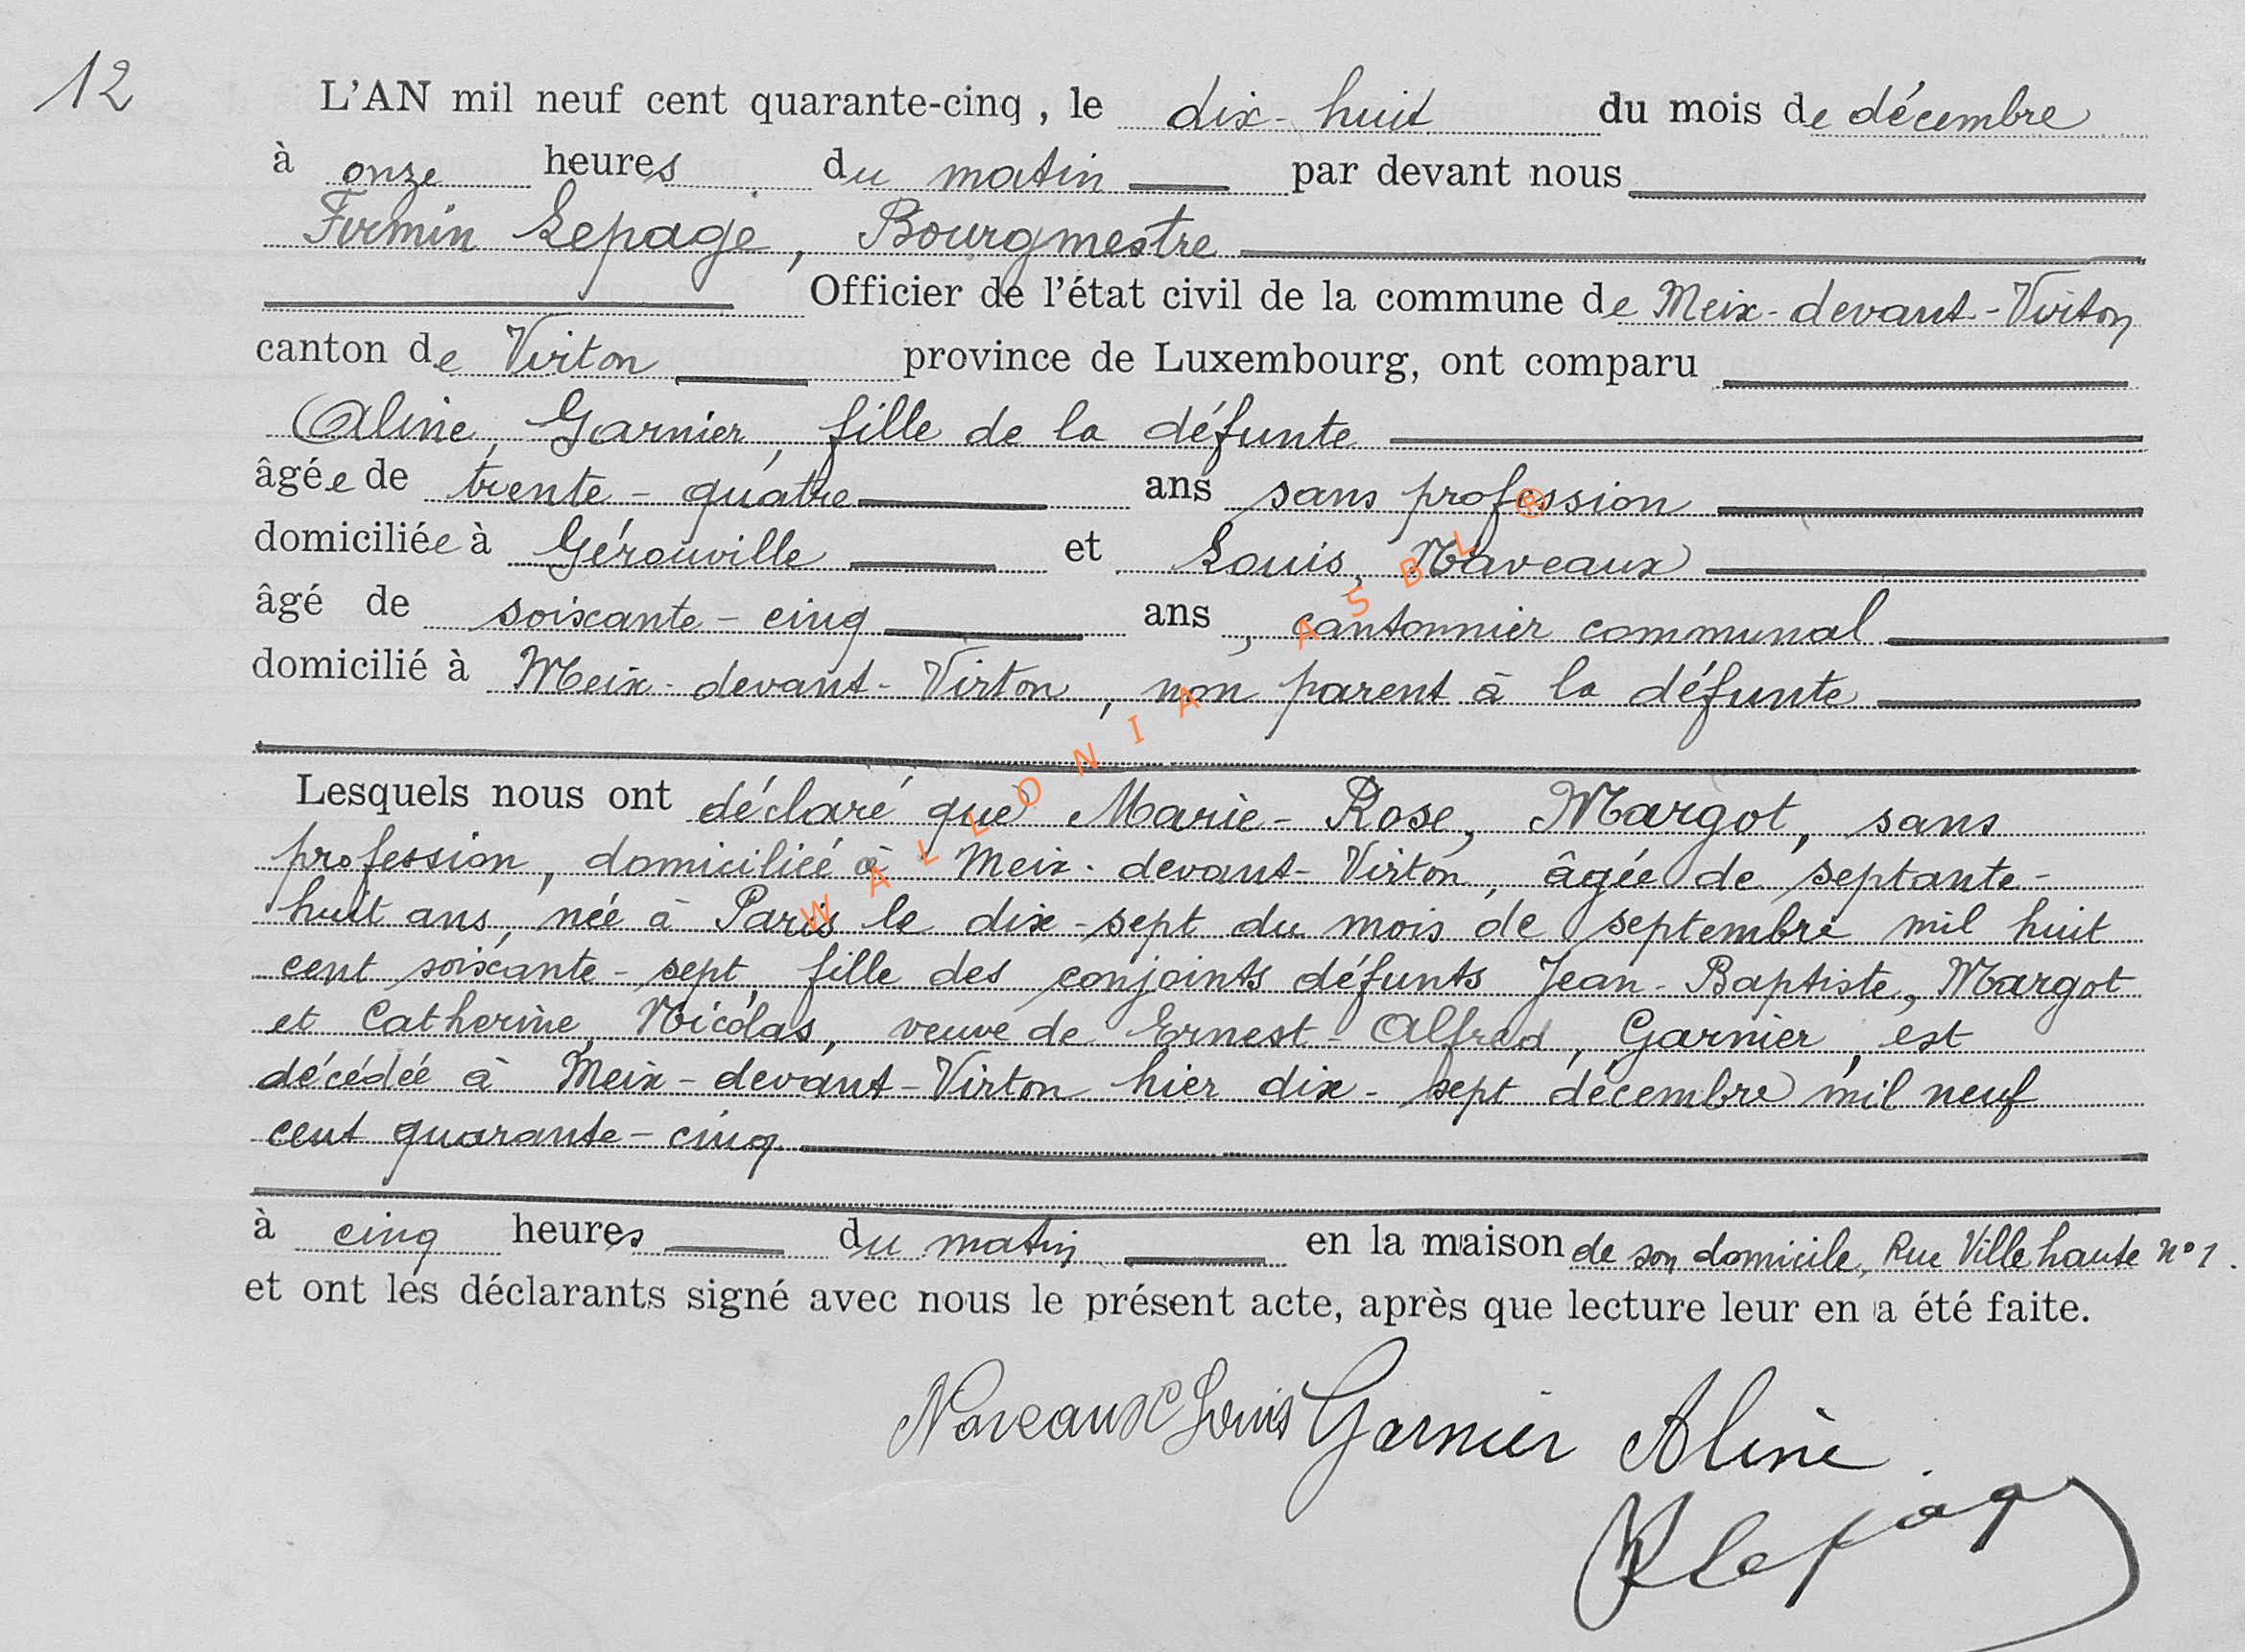 12
L'AN mil neuf cent quarante-cinq, le dix-huit du mois de décembre
à onze heures du matin par devant nous
Firmin Lepage, Bourgmestre
Officier de l'état civil de la commune de Meix-devant-Virton
canton de Virton province de Luxembourg, ont comparu
Aline, Garnier, fille de la défunte
âgée de trente-quatre ans sans profession
domiciliée à Gérouville et Louis, Naveaux
âgé de soixante-cinq ans, cantonnier communal
domicilié à Meix-devant-Virton, non parent à la défunte
Lesquels nous ont déclaré que Marie-Rose, Margot, sans
profession, domiciliée à Meix-devant-Virton, âgée de septante-
huit ans, née à Paris le dix-sept du mois de septembre mil huit
cent soixante-sept, fille des conjoints défunts Jean-Baptiste, Margot
et Catherine, Nicolas, veuve de Ernest-Alfred, Garnier, est
décédée à Meix-devant-Virton hier dix-sept décembre mil neuf
cent quarante-cinq
à cinq heures du matin en la maison de son domicile, Rue Ville haute n° 1.
et ont les déclarants signé avec nous le présent acte, après que lecture leur en a été faite.
Naveaux Louis Garnier Aline.
FLepage
WALLONIA ASBL ®